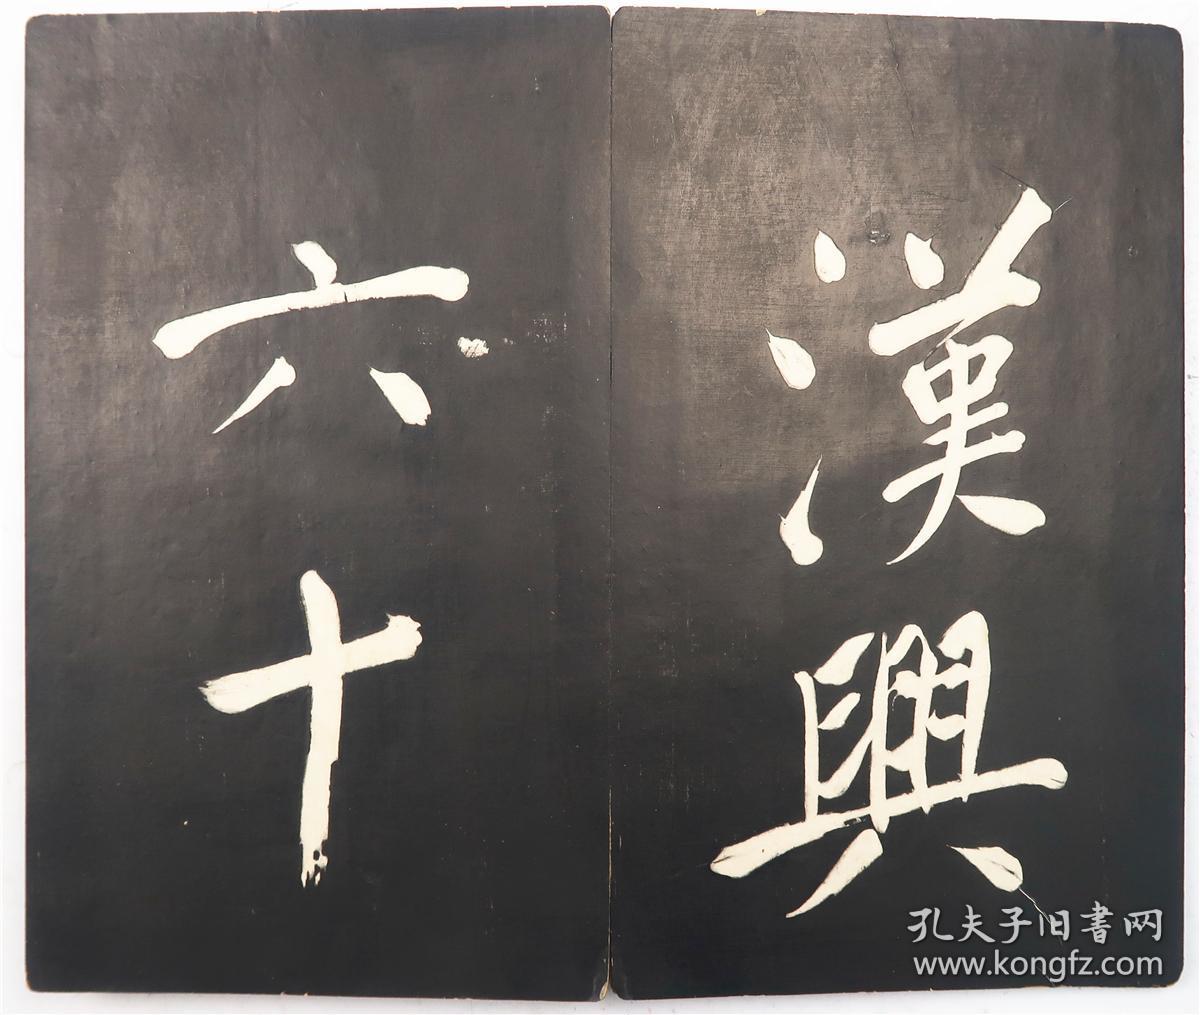 漢興
六十
孔夫子旧书网
www.kongfz.com